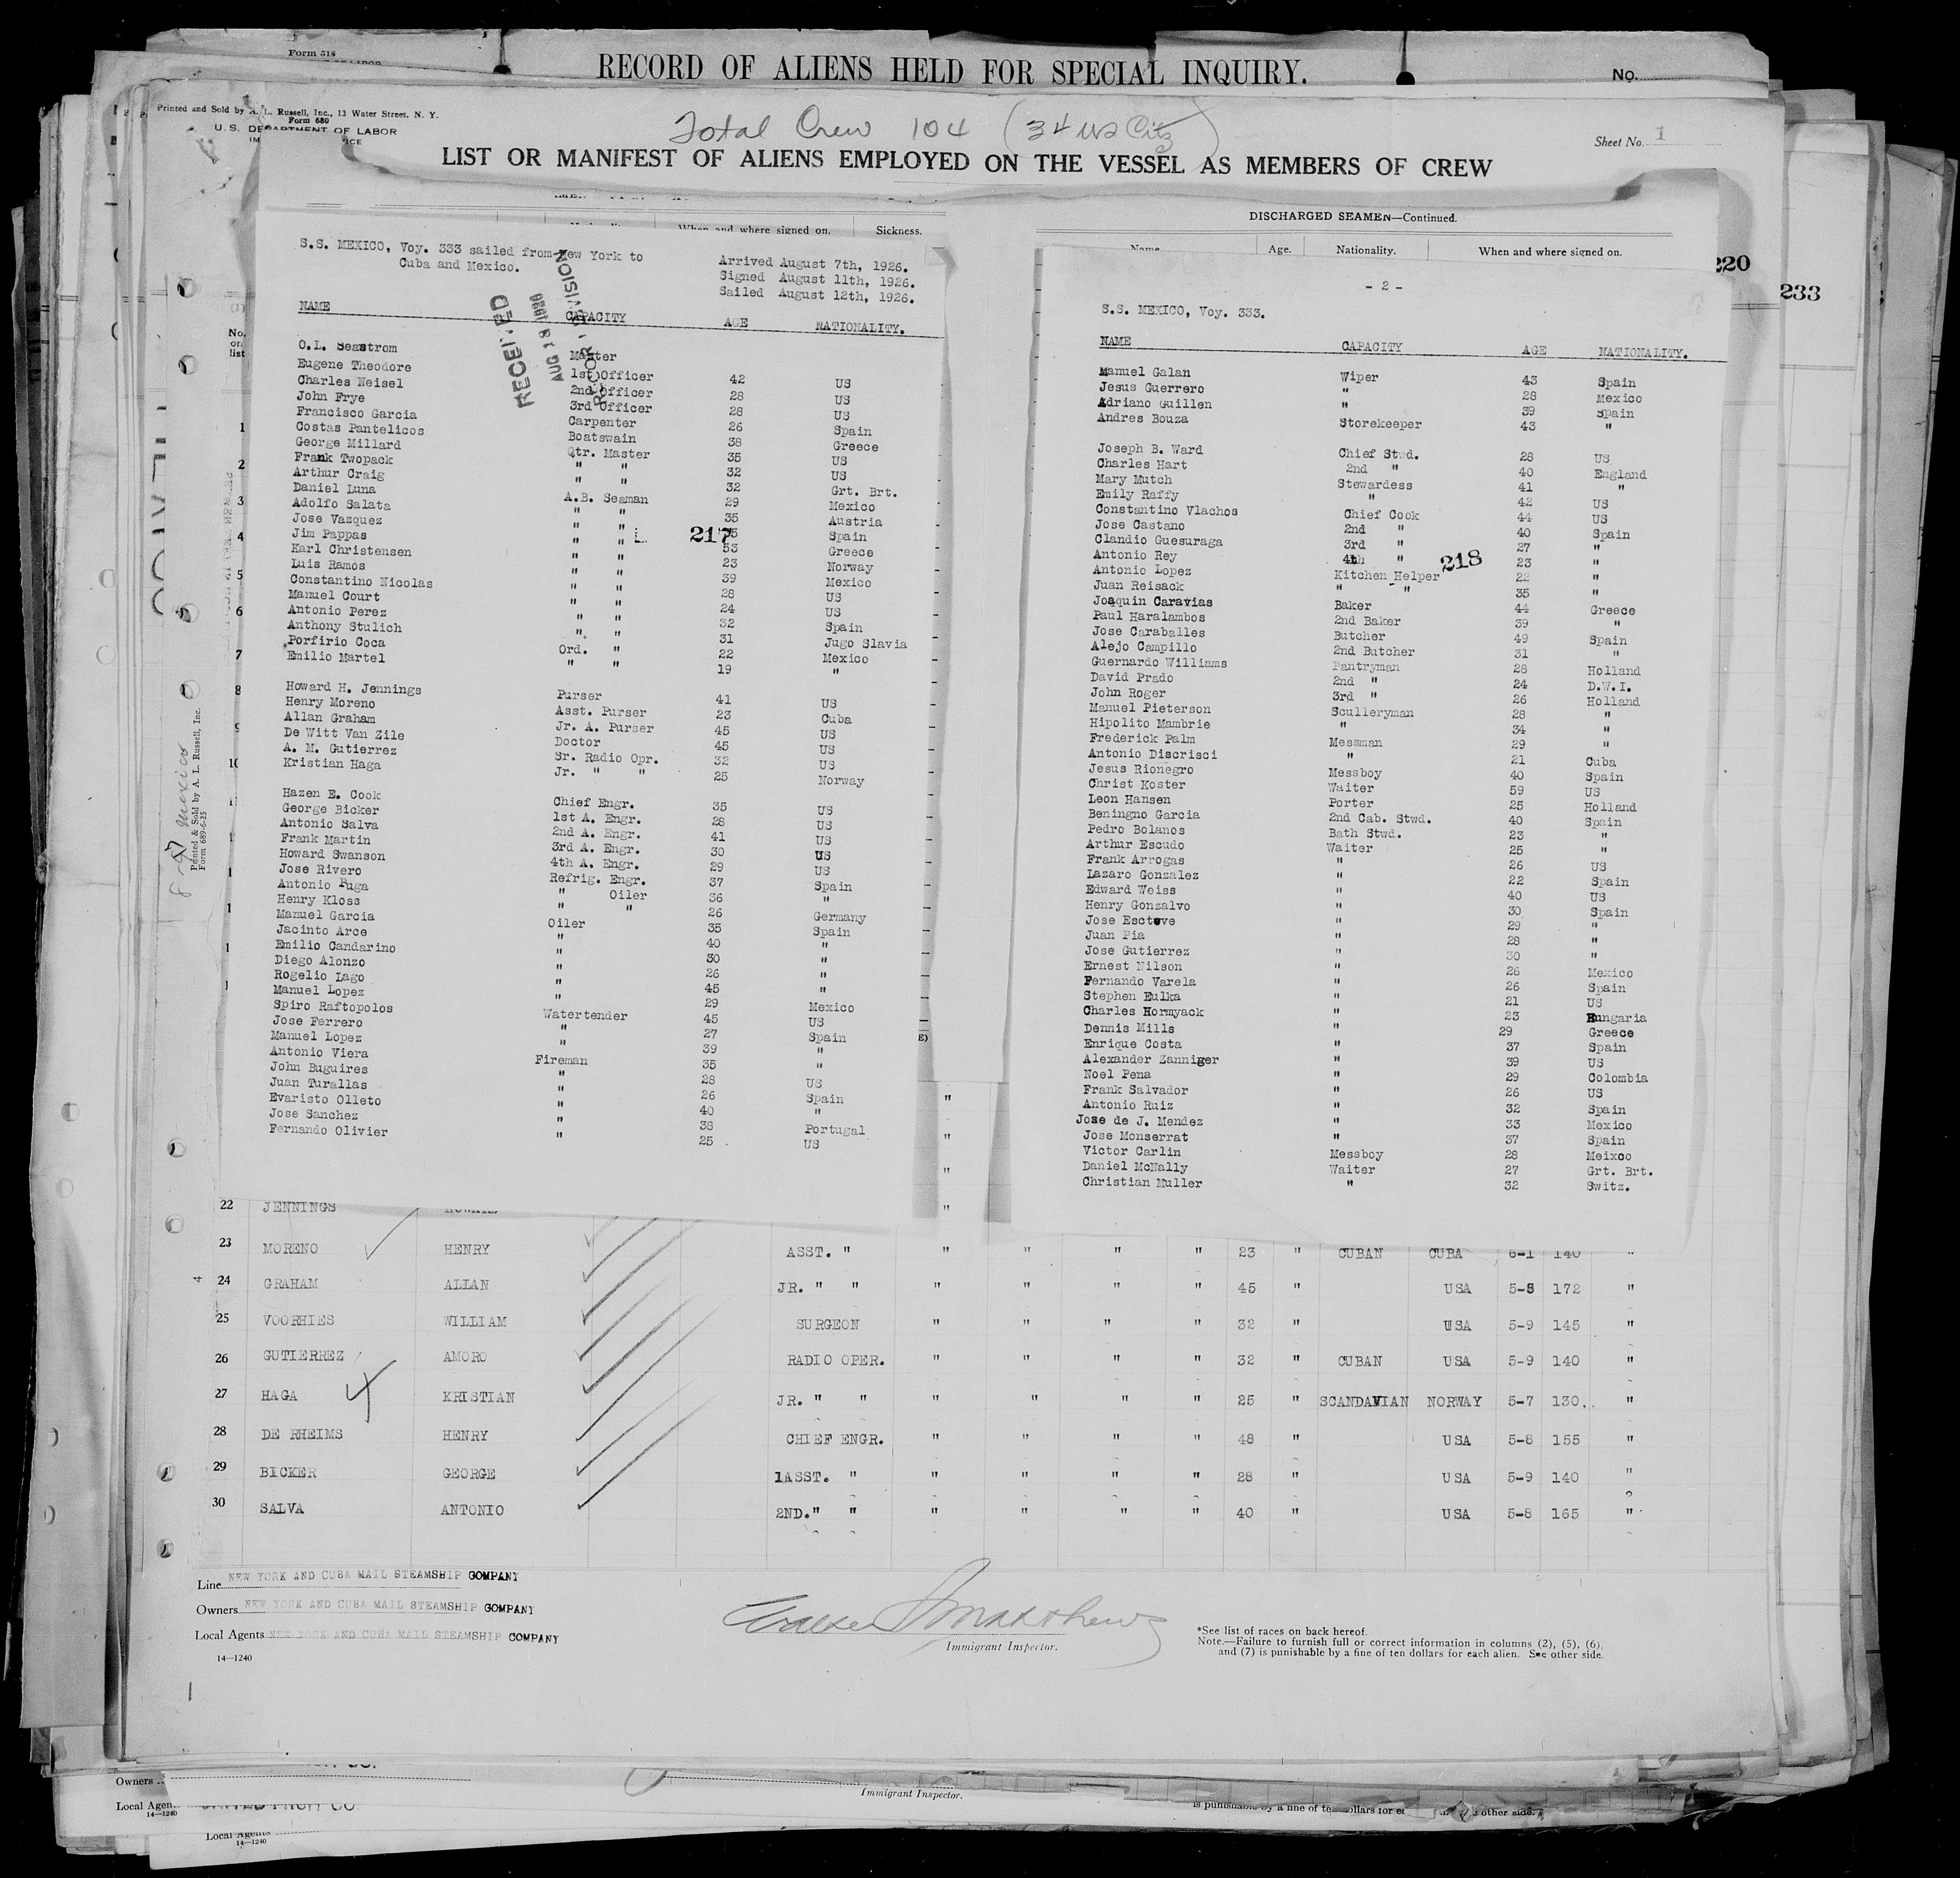 Form 318
RECORD OF ALIENS HELD FOR SPECIAL INQUIRY.
No.
Printed and Sold by A. L. Russell, Inc., 13 Water Street, N. Y.
Form 680
U.S. DEPARTMENT OF LABOR
Total Crew 104 (34 US Citz)
Sheet No. 1
LIST OR MANIFEST OF ALIENS EMPLOYED ON THE VESSEL AS MEMBERS OF CREW
When and where signed on. Sickness.
S.S. MEXICO, Voy. 333 sailed from New York to
Cuba and Mexico.
Arrived August 7th, 1926.
Signed August 11th, 1926.
Sailed August 12th, 1926.
RECEIVED
AUG 18 1926
NAME CAPACITY AGE NATIONALITY.
O.L. Seastrom Master
Eugene Theodore 1st Officer 42 US
Charles Neisel 2nd Officer 28 US
John Frye 3rd Officer 28 US
Francisco Garcia Carpenter 26 Spain
Costas Pantelicos Boatswain 38 Greece
George Millard Qtr. Master 35 US
Frank Twopack " " 32 US
Arthur Craig " " 32 Grt. Brt.
Daniel Luna A.B. Seaman 29 Mexico
Adolfo Salata " " 35 Austria
Jose Vazquez " " Spain
217
Jim Pappas " " 53 Greece
Karl Christensen " " 23 Norway
Luis Ramos " " 39 Mexico
Constantino Nicolas " " 28 US
Manuel Court " " 24 US
Antonio Perez " " 32 Spain
Anthony Stulich " " 31 Jugo Slavia
Porfirio Coca Ord. " 22 Mexico
Emilio Martel " " 19 "
Howard H. Jennings Purser 41 US
Henry Moreno Asst. Purser 23 Cuba
Allan Graham Jr. A. Purser 45 US
De Witt Van Zile Doctor 45 US
A. M. Gutierrez Sr. Radio Opr. 32 US
Kristian Haga Jr. " " 25 Norway
Hazen E. Cook Chief Engr. 35 US
George Bicker 1st A. Engr. 28 US
Antonio Salva 2nd A. Engr. 41 US
Frank Martin 3rd A. Engr. 30 US
Howard Swanson 4th A. Engr. 29 US
Jose Rivero Refrig. Engr. 37 Spain
Antonio Puga " Oiler 36 "
Henry Kloss " " 26 Germany
Manuel Garcia Oiler 35 Spain
Jacinto Arce " 40 "
Emilio Candarino " 30 "
Diego Alonzo " 26 "
Rogelio Lago " 45 "
Manuel Lopez " 29 Mexico
Spiro Raftopolos Watertender 45 US
Jose Ferrero " 27 Spain
Manuel Lopez " 39 "
Antonio Viera Fireman 35 "
John Buguires " 28 US
Juan Turallas " 26 Spain
Evaristo Olleto " 40 "
Jose Sanchez " 38 Portugal
Fernando Olivier " 25 US
DISCHARGED SEAMEN—Continued.
Name Age. Nationality. When and where signed on.
220
233
- 2 -
S.S. MEXICO, Voy. 333.
NAME CAPACITY AGE NATIONALITY.
Manuel Galan Wiper 43 Spain
Jesus Guerrero " 28 Mexico
Adriano Guillen " 39 Spain
Andres Bouza Storekeeper 43 "
Joseph B. Ward Chief Stwd. 28 US
Charles Hart 2nd " 40 England
Mary Mutch Stewardess 41 "
Emily Raffy " 42 US
Constantino Vlachos Chief Cook 44 US
Jose Castano 2nd " 40 Spain
Clandio Guesuraga 3rd " 27 "
Antonio Rey 4th " 23 "
218
Antonio Lopez Kitchen Helper 22 "
Juan Reisack " " 35 "
Joaquin Caravias Baker 44 Greece
Paul Haralambos 2nd Baker 39 "
Jose Caraballes Butcher 49 Spain
Alejo Campillo 2nd Butcher 31 "
Guernardo Williams Pantryman 28 Holland
David Prado 2nd " 24 D.W.I.
John Roger 3rd " 26 Holland
Manuel Pieterson Sculleryman 28 "
Hipolito Mambrie " 34
Frederick Palm Messman 29 "
Antonio Discrisci " 21 Cuba
Jesus Rionegro Messboy 40 Spain
Christ Koster Waiter 59 US
Leon Hansen Porter 25 Holland
Beningno Garcia 2nd Cab. Stwd. 40 Spain
Pedro Bolanos Bath Stwd. 23 "
Arthur Escudo Waiter 25 "
Frank Arrogas " 26 US
Lazaro Gonzalez " 22 Spain
Edward Weiss " 40 US
Henry Gonzalvo " 30 Spain
Jose Escteve " 29 "
Juan Pia " 28 "
Jose Gutierrez " 30 "
Ernest Nilson " 26 Mexico
Fernando Varela " 26 Spain
Stephen Eulka " 21 US
Charles Hormyack " 23 Hungaria
Dennis Mills " 29 Greece
Enrique Costa " 37 Spain
Alexander Zanniger " 39 US
Noel Pena " 29 Colombia
Frank Salvador " 26 US
Antonio Ruiz " 32 Spain
Jose de J. Mendez " 33 Mexico
Jose Monserrat " 37 Spain
Victor Carlin Messboy 28 Meixco
Daniel McNally Waiter 27 Grt. Brt.
Christian Muller " 32 Switz.
No. on list
1
2
3
4
5
6
7
8
Mexico
Printed & Sold by A. L. Russell, Inc.
Form 689-6-25
22 JENNINGS "
23 MORENO HENRY ASST. " " " " " 23 " CUBAN CUBA 6-1 140 "
24 GRAHAM ALLAN JR. " " " " " " 45 " USA 5-8 172 "
25 VOORHIES WILLIAM SURGEON " " " " 32 " USA 5-9 145 "
26 GUTIERREZ AMORO RADIO OPER. " " " " 32 " CUBAN USA 5-9 140 "
27 HAGA KRISTIAN JR. " " " " " " 25 " SCANDAVIAN NORWAY 5-7 130 "
28 DE RHEIMS HENRY CHIEF ENGR. " " " " 48 " USA 5-8 155 "
29 BICKER GEORGE 1ASST. " " " " " 28 " USA 5-9 140 "
30 SALVA ANTONIO 2ND. " " " " " " 40 " USA 5-8 165 "
Line NEW YORK AND CUBA MAIL STEAMSHIP COMPANY
Owners NEW YORK AND CUBA MAIL STEAMSHIP COMPANY
Local Agents NEW YORK AND CUBA MAIL STEAMSHIP COMPANY
14—1240
Immigrant Inspector.
*See list of races on back hereof.
Note.—Failure to furnish full or correct information in columns (2), (5), (6),
and (7) is punishable by a fine of ten dollars for each alien. See other side.
Owners
Immigrant Inspector.
14—1240
Local Agents
14—1240